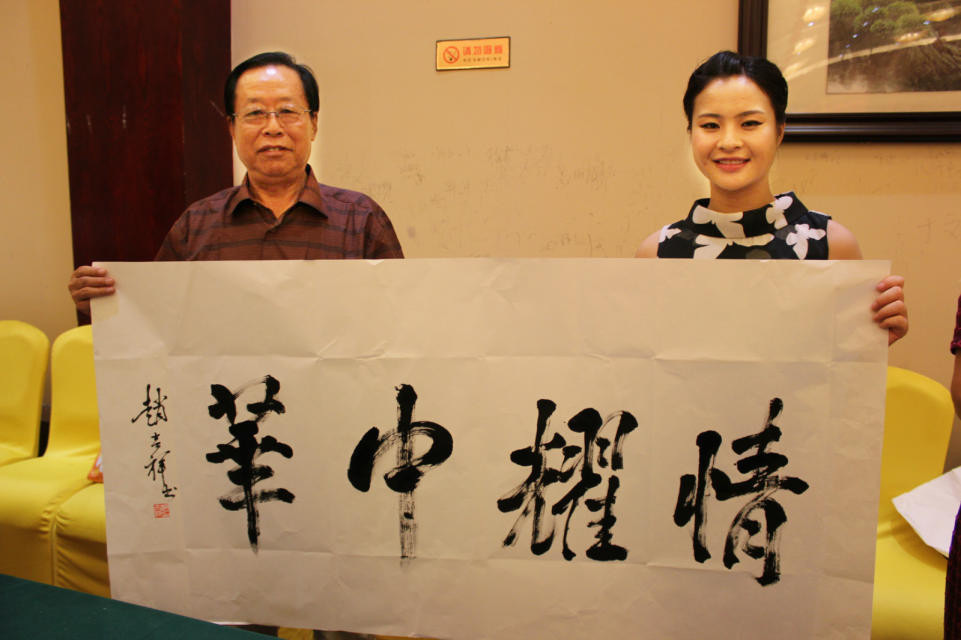 请勿吸烟
情耀中華
趙吉祥书